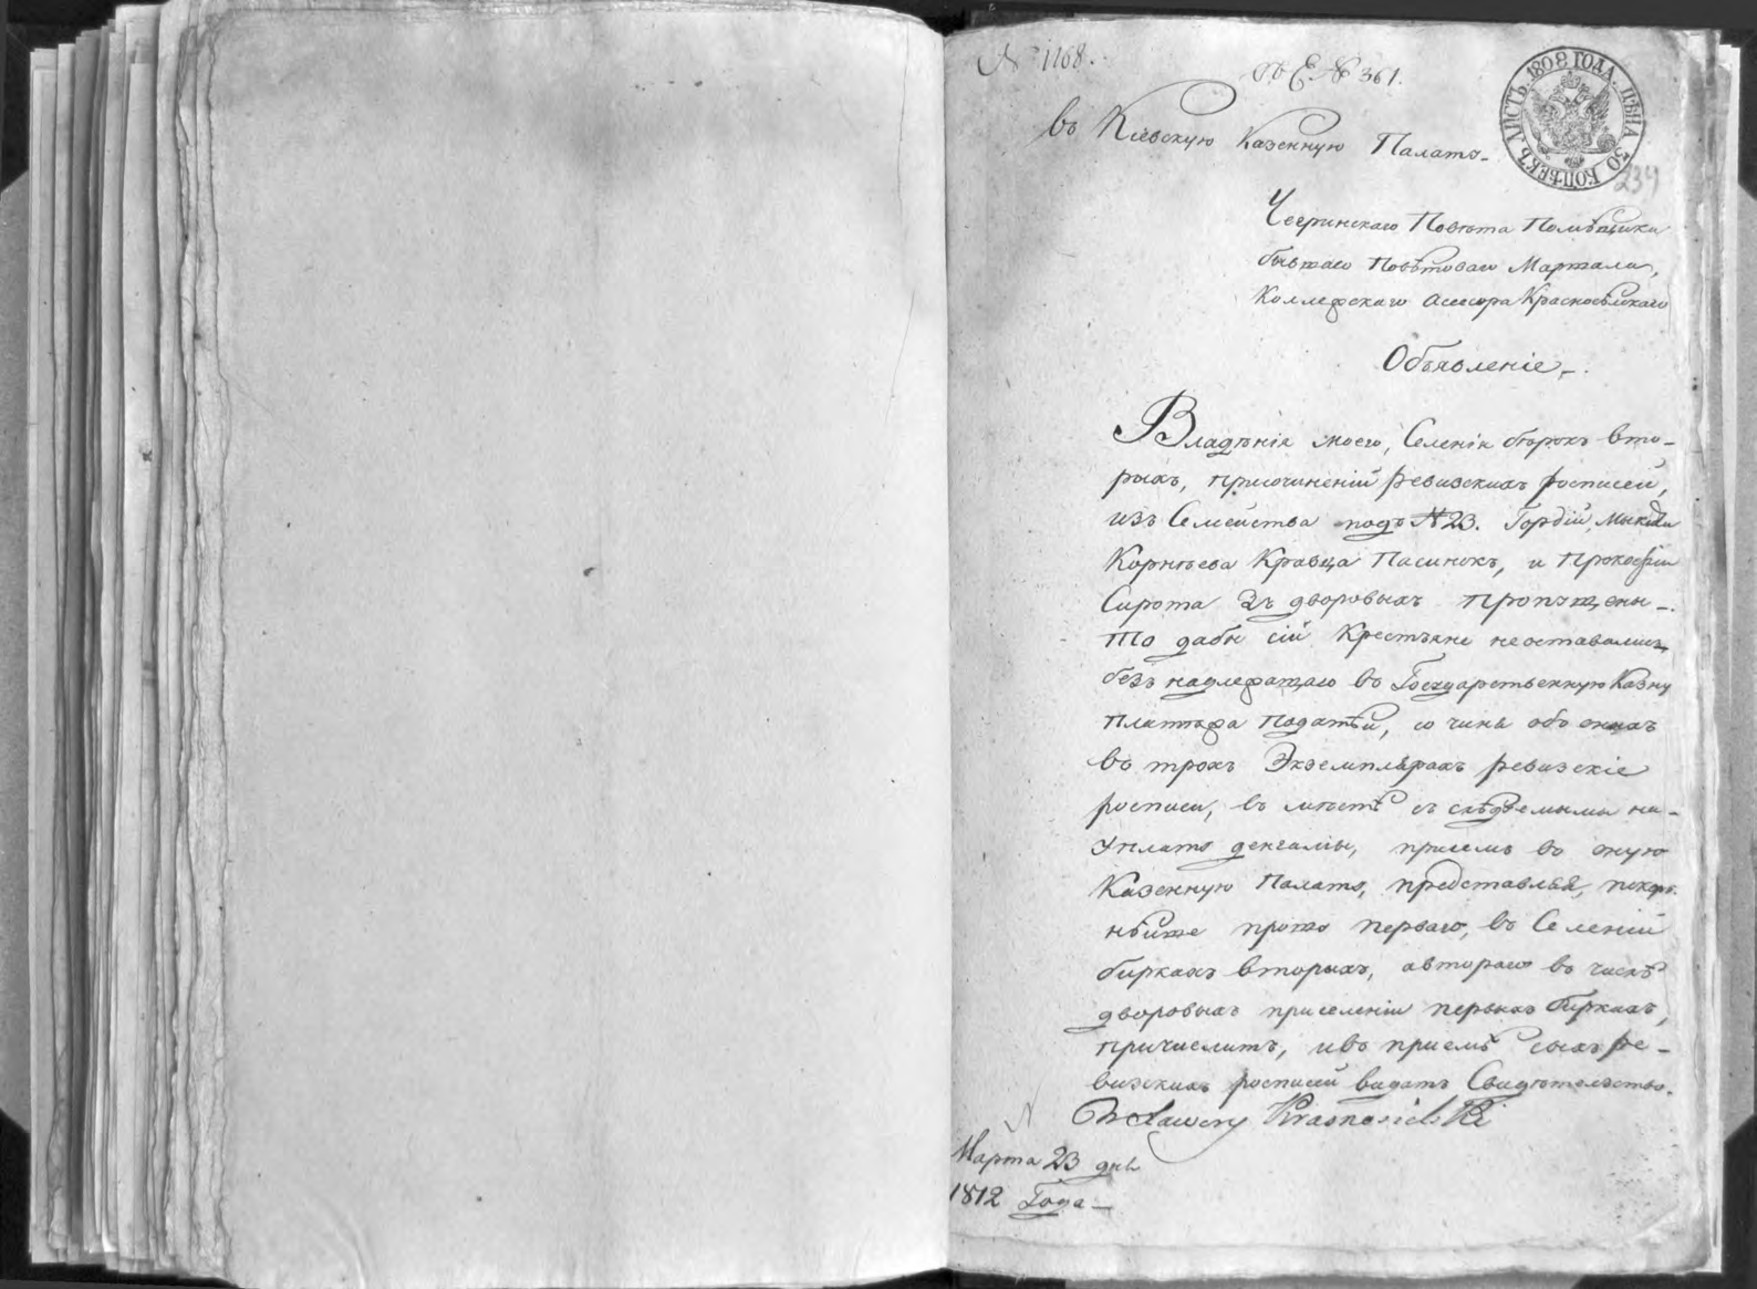 № 1168.
№ 361.
ЛИСТЪ. 1808 ГОДА. ЦѢНА 50 КОПѢЕКЪ
234
въ Кіевскую Казенную Палату
Чегринскаго Повѣта Помѣщика
бывшаго Повѣтоваго Маршала,
Коллежскаго Асесора Красносѣлскаго
Объявленіе.
Владѣнія моего, Селенія бѣрокъ вто-
рыхъ, присочиненій ревизскихъ росписей,
изъ Семейства подъ № 23. Гордій,
Корнѣева Кравца Пасинокъ, и Прокофій
Сирота изъ дворовыхъ пропущены.
То дабы сіи Крестьяне неоставались
безъ надлежащаго въ Государственную Казну
платежа податей, сочиня объ оныхъ
въ трохъ Экземплярахъ ревизскіе
росписи, въ мѣстѣ съ слѣдуемыми на-
уплату денгами, присемъ во оную
Казенную Палату, представляя, покор-
нѣйше прошу перваго, въ Селеніи
биркахъ вторыхъ, автораго въ числѣ
дворовыхъ приселеніи первыхъ биркахъ,
причислить, ивъ пріемѣ сыхъ ре-
визскихъ росписей видать Свидѣтельство.
Krasnosielski
Марта 23 дня
1812 Года